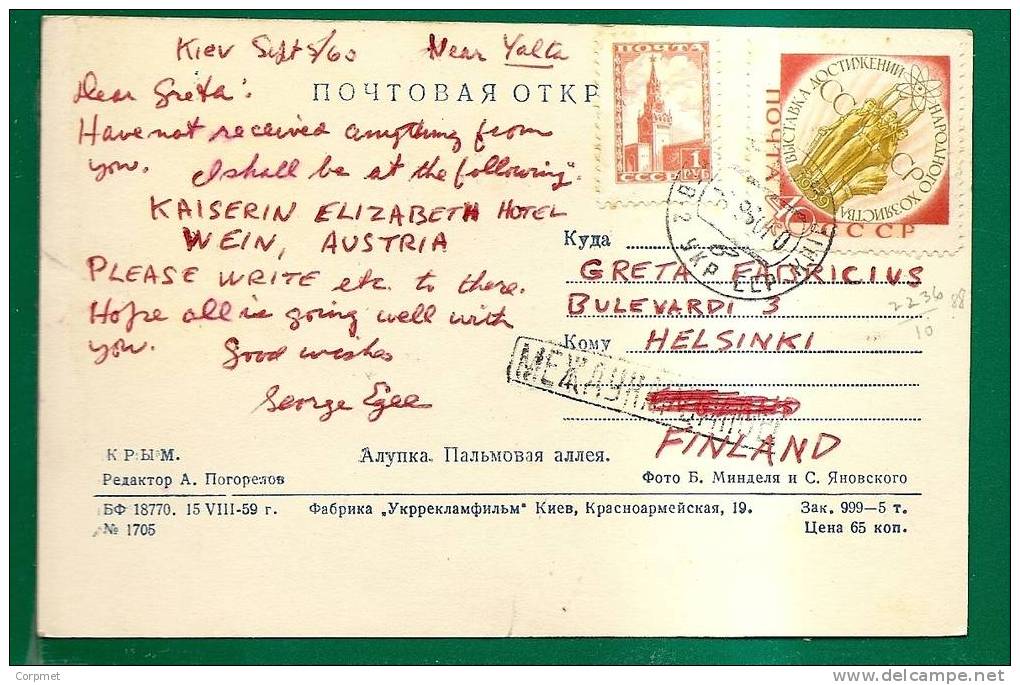 Kiev Sept 5/60 Near Yalta
Dear Greta:
ПОЧТОВАЯ ОТКР
Have not received anything from
you. I shall be at the following:
KAISERIN ELIZABETH HOTEL
WEIN, AUSTRIA
PLEASE WRITE etc. to there.
Hope all is going well with
you. Good wishes
George Egee
ПОЧТА
1 РУБ
СССР
ВЫСТАВКА ДОСТИЖЕНИЙ НАРОДНОГО ХОЗЯЙСТВА
СССР
1959
ПОЧТА
40
СССР
УКР ССР
Куда
GRETA FABRICIUS
BULEVARDI 3
Кому HELSINKI
FINLAND
2236
10
88
КРЫМ. Алупка. Пальмовая аллея.
Редактор А. Погорелов Фото Б. Минделя и С. Яновского
БФ 18770. 15 VIII-59 г. Фабрика „Укррекламфильм" Киев, Красноармейская, 19. Зак. 999—5 т.
№ 1705 Цена 65 коп.
Corpmet
delcampe.net